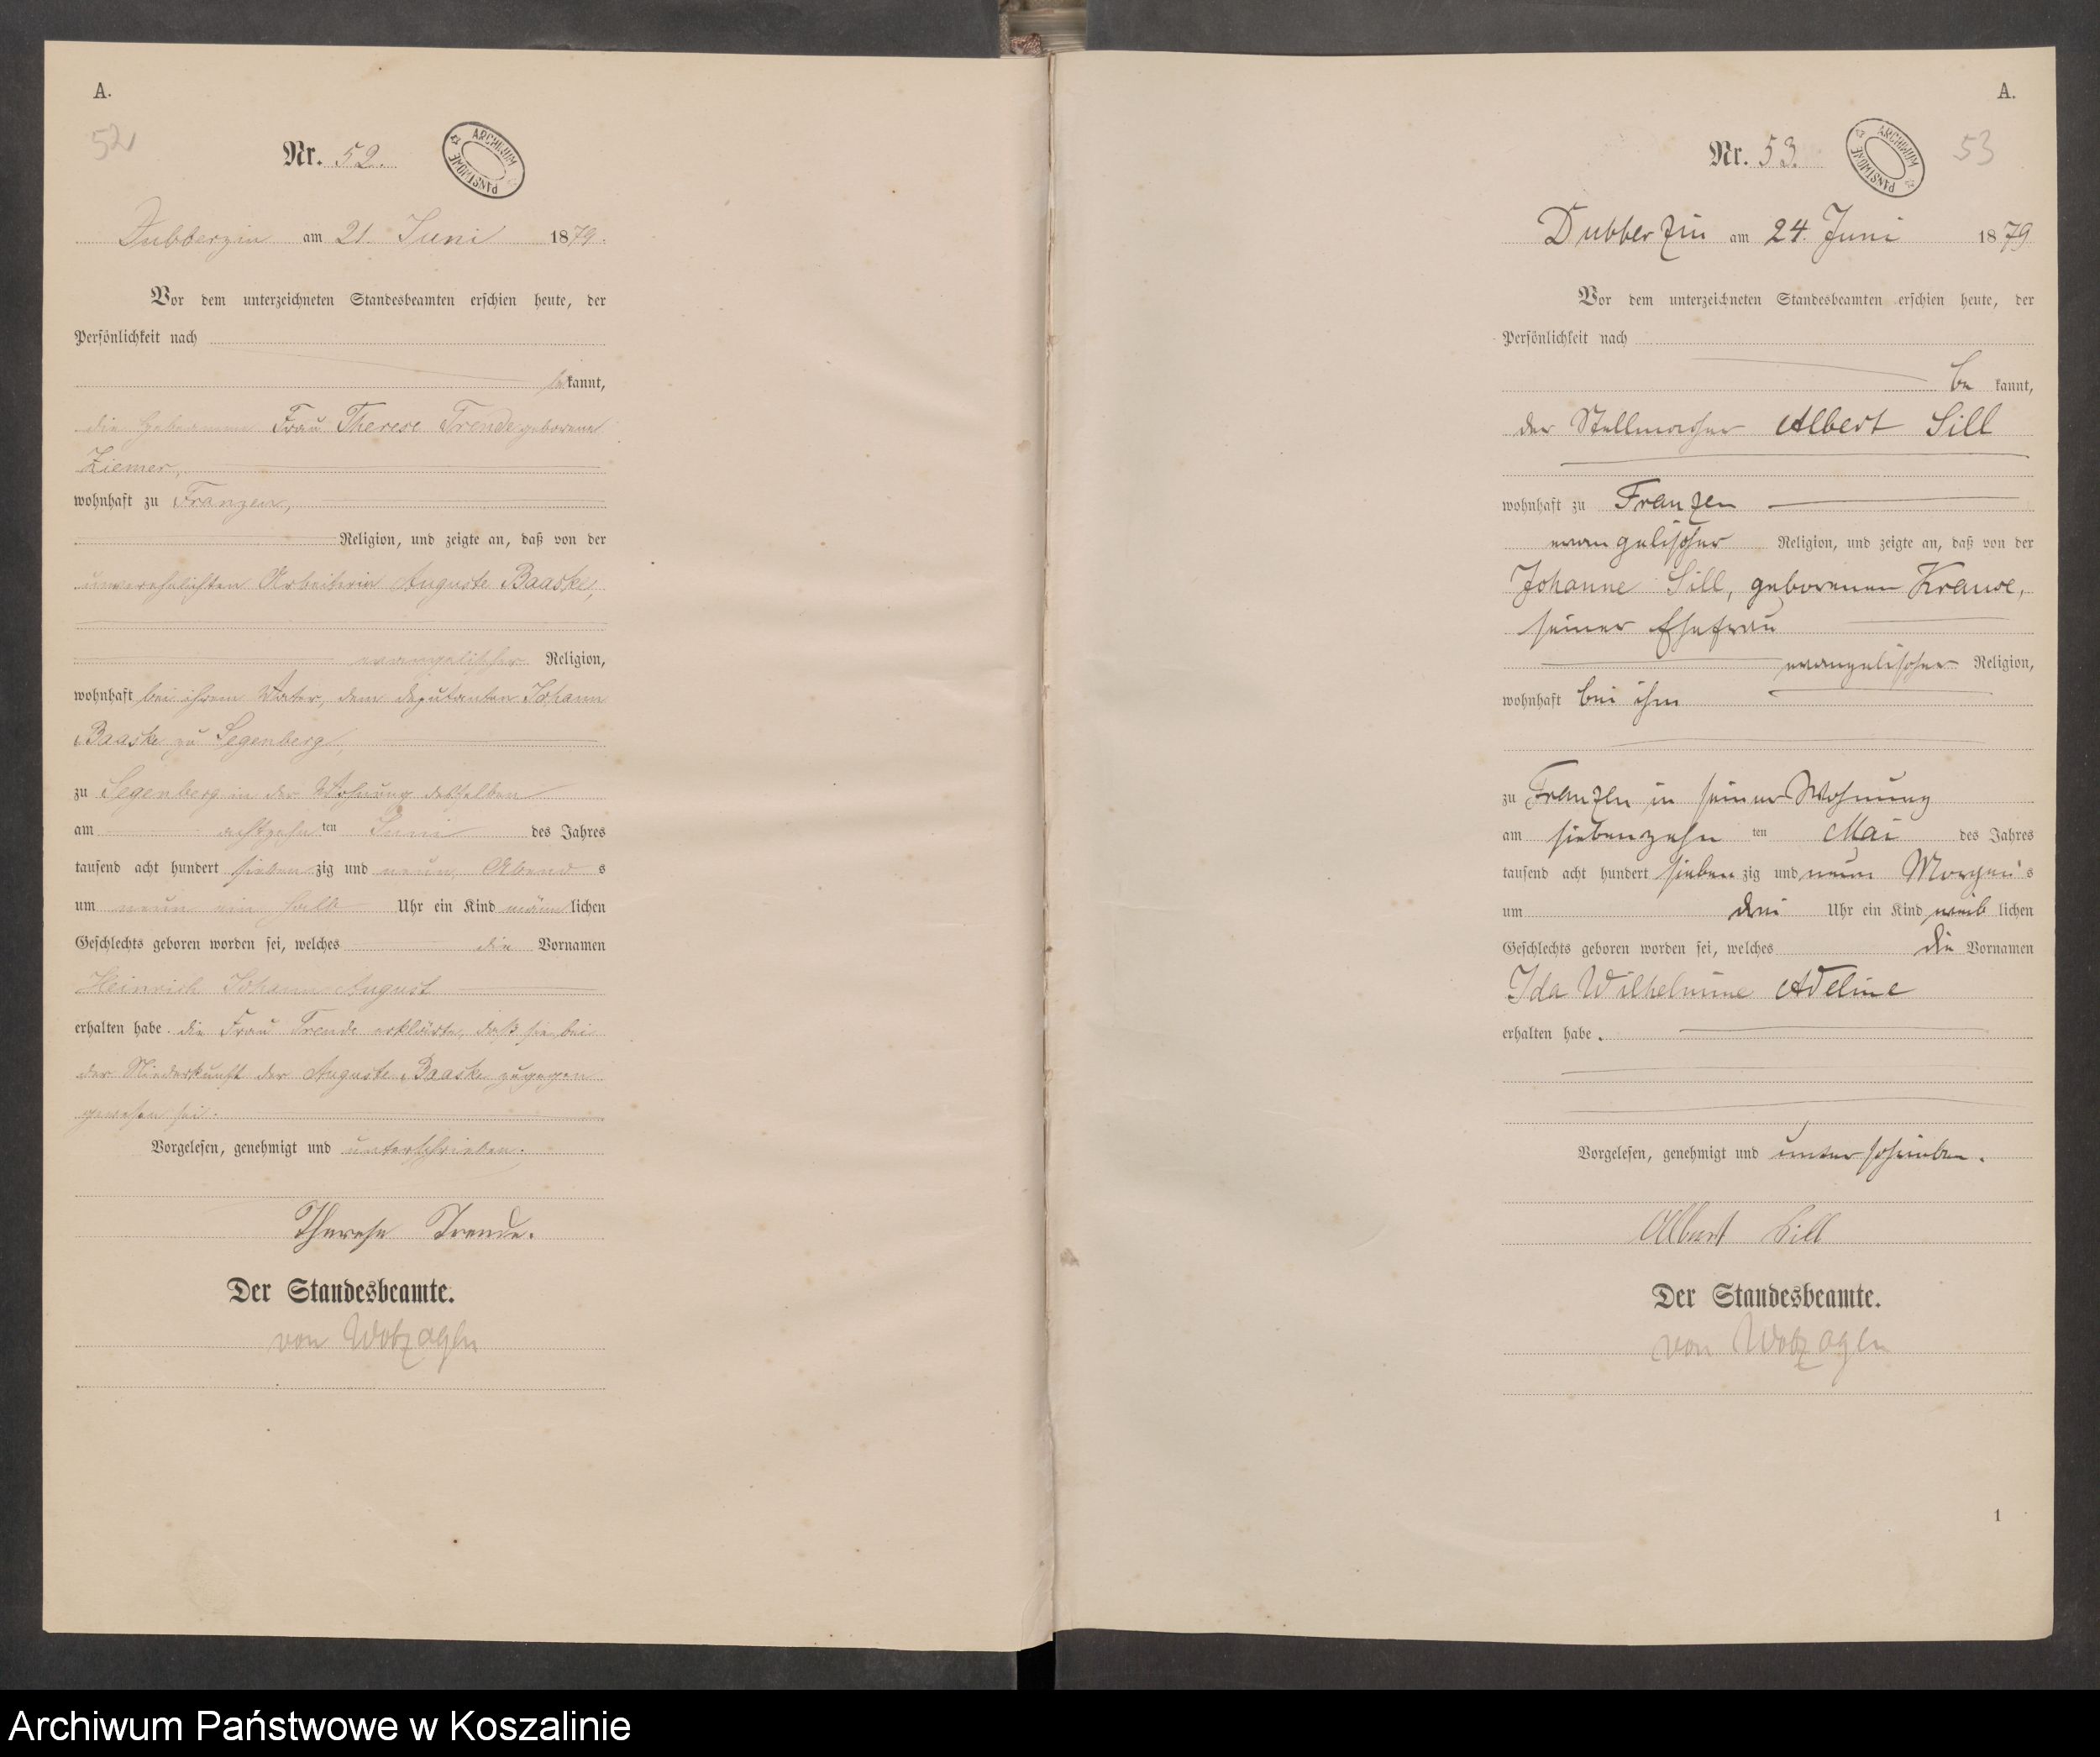 A.
52
Nr. 52.
ARCHIWUM PAŃSTWOWE
Dubberzin am 21. Juni 1879.
Vor dem unterzeichneten Standesbeamten erschien heute, der
Persönlichkeit nach
bekannt,
die Hebamme Frau Therese Trende geborene
Ziemer,
wohnhaft zu Franzen,
Religion, und zeigte an, daß von der
unverehelichten Arbeiterin Auguste Baaske,
evangelischer Religion,
wohnhaft bei ihrem Vater, dem Deputanten Johann
Baaske zu Segenberg,
zu Segenberg in der Wohnung desselben
am achtzehnten Juni des Jahres
tausend acht hundert siebenzig und neun Abends
um neun ein halb Uhr ein Kind männlichen
Geschlechts geboren worden sei, welches die Vornamen
Heinrich Johann August
erhalten habe. die Frau Trende erklärte, daß sie bei
der Niederkunft der Auguste Baaske zugegen
gewesen sei.
Vorgelesen, genehmigt und unterschrieben.
Therese Trende.
Der Standesbeamte.
von
A.
Nr. 53.
ARCHIWUM PAŃSTWOWE
53
Dubberzin am 24. Juni 1879
Vor dem unterzeichneten Standesbeamten erschien heute, der
Persönlichkeit nach
bekannt,
der Stellmacher Albert Sill
wohnhaft zu Franzen
evangelischer Religion, und zeigte an, daß von der
Johanne Sill, geborenen Krause,
seiner Ehefrau
evangelischer Religion,
wohnhaft bei ihm
zu Franzen in seiner Wohnung
am siebenzehnten Mai des Jahres
tausend acht hundert siebenzig und neun Morgens
um drei Uhr ein Kind weiblichen
Geschlechts geboren worden sei, welches die Vornamen
Ida Wilhelmine Adeline
erhalten habe.
Vorgelesen, genehmigt und unterschrieben.
Albert Sill
Der Standesbeamte.
von
1
Archiwum Państwowe w Koszalinie